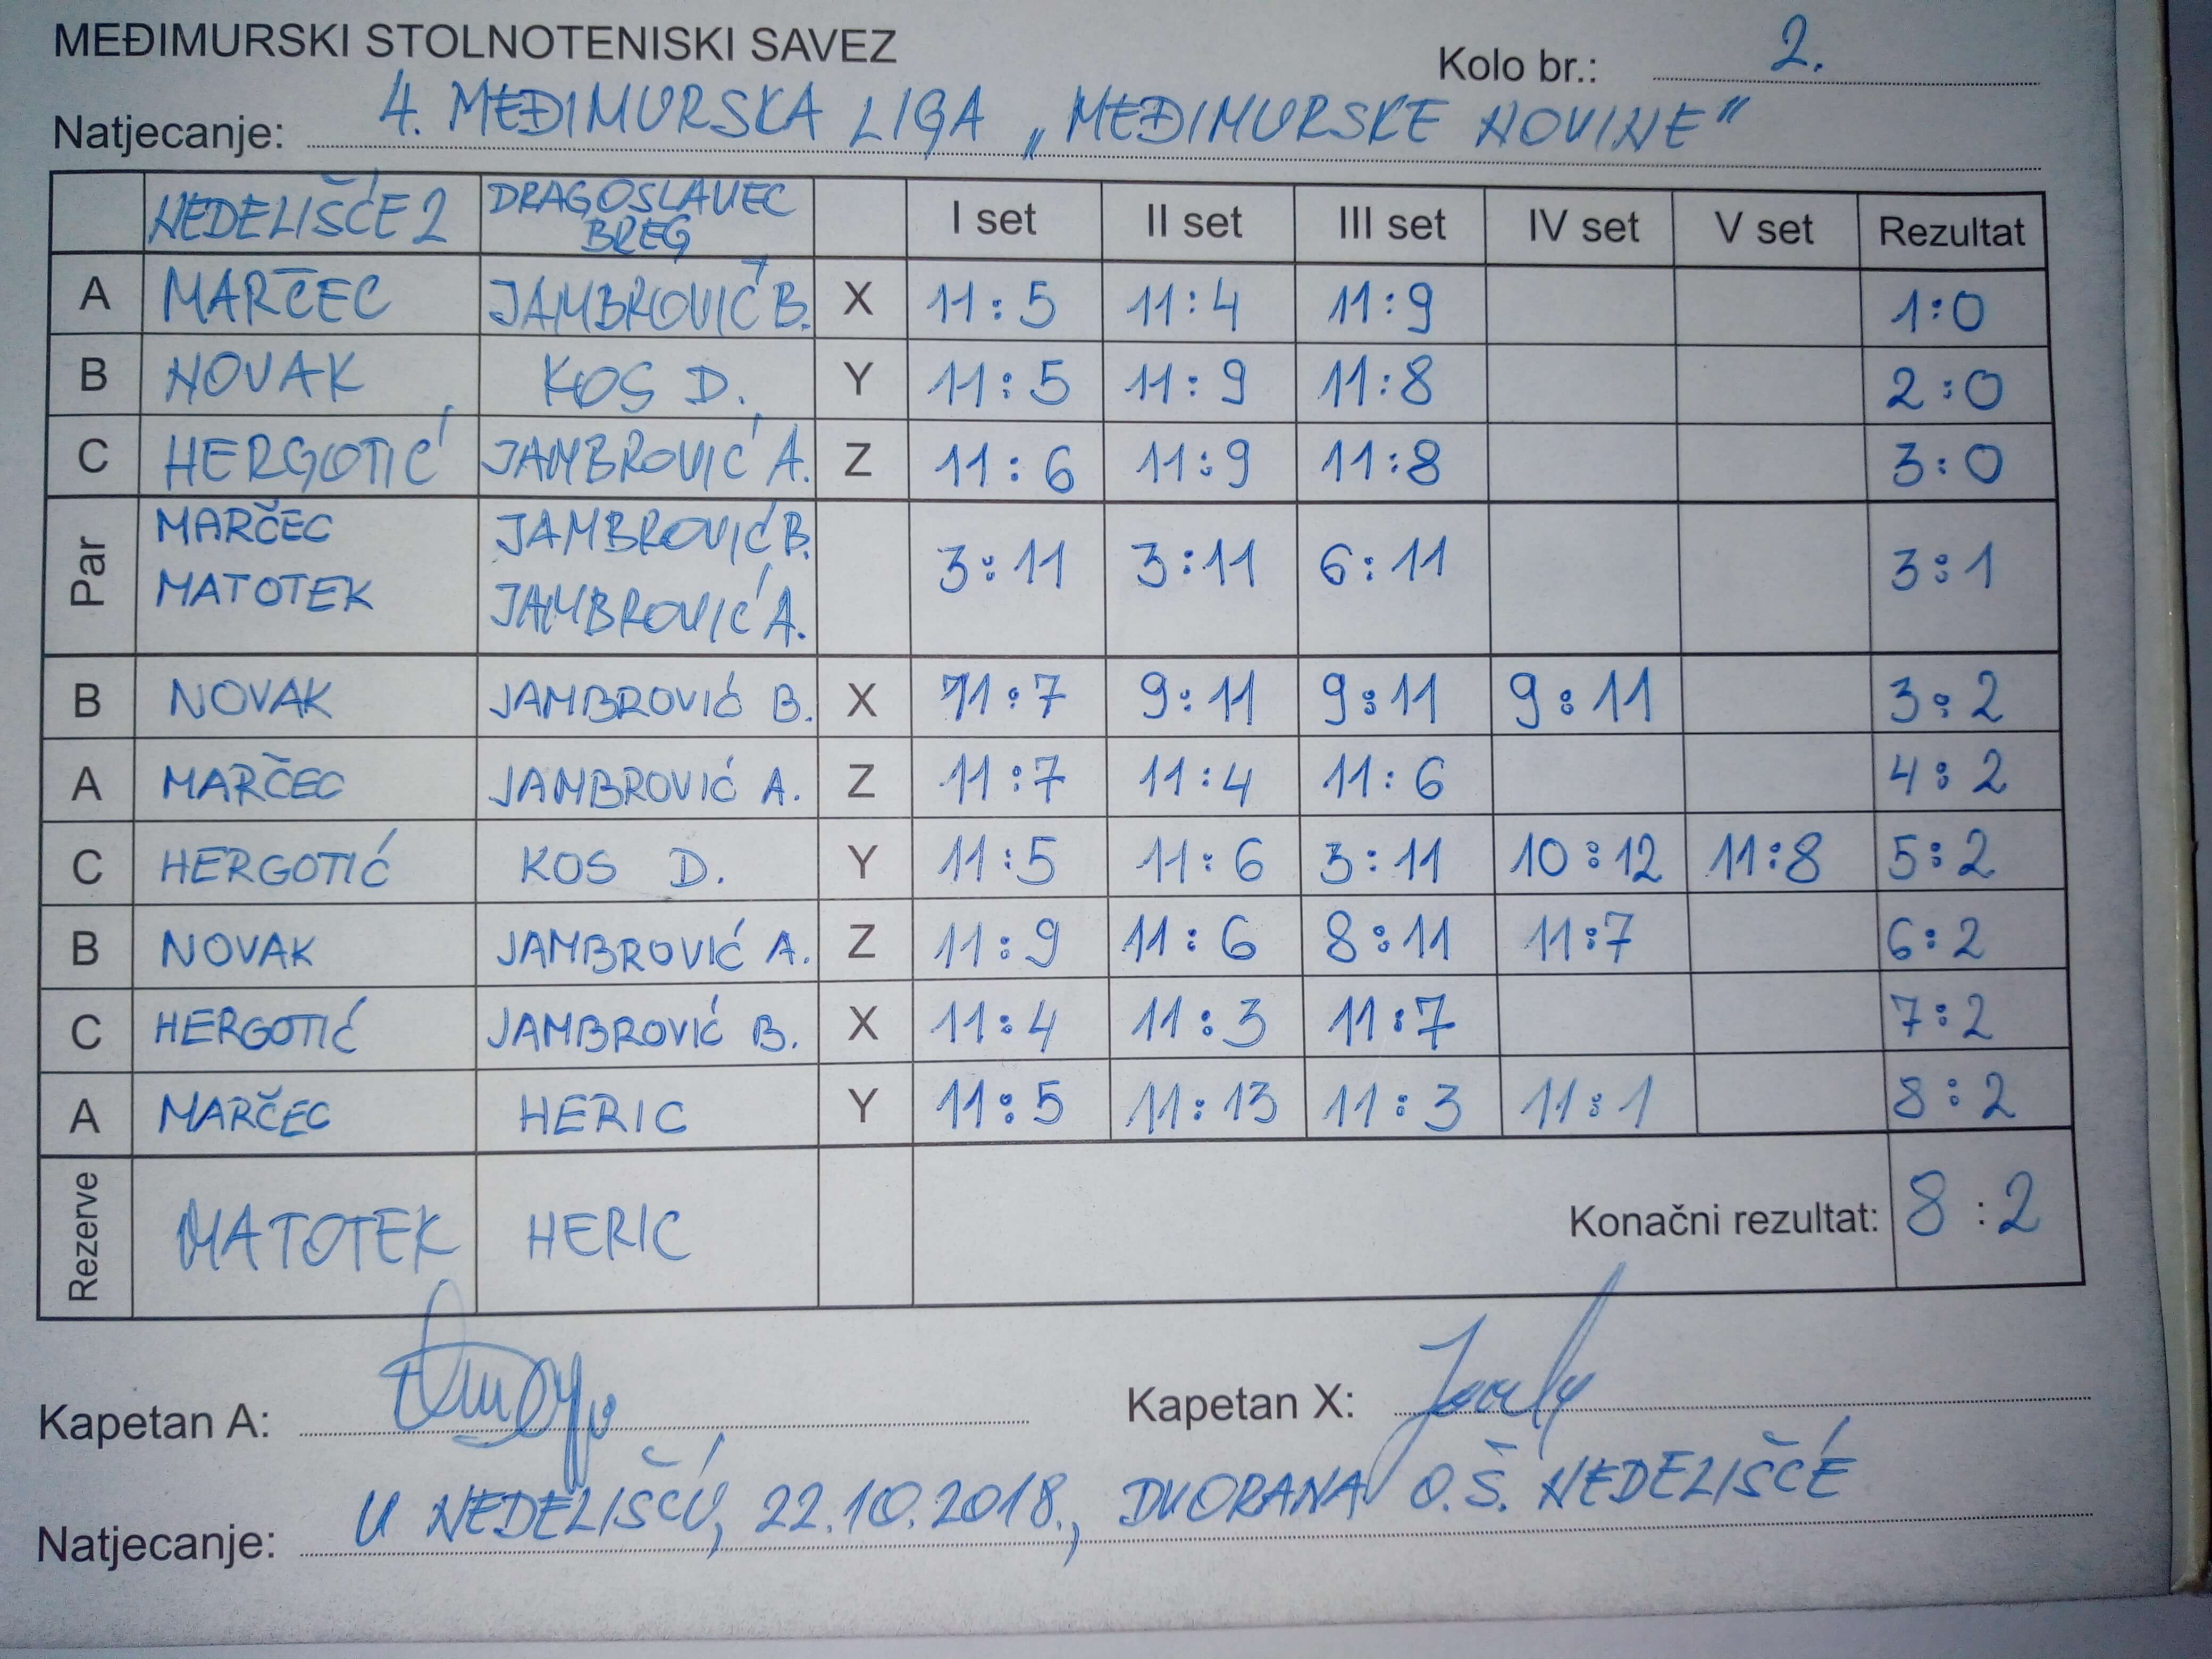 MEĐIMURSKI STOLNOTENISKI SAVEZ
Kolo br.: 2.
Natjecanje: 4. MEĐIMURSKA LIGA „MEĐIMURSKE NOVINE"
NEDELIŠĆE 2 DRAGOSLAVEC BREG I set II set III set IV set V set Rezultat
A MARČEC JAMBROVIĆ B. X 11:5 11:4 11:9 1:0
B NOVAK KOS D. Y 11:5 11:9 11:8 2:0
C HERGOTIĆ JAMBROVIĆ A. Z 11:6 11:9 11:8 3:0
Par MARČEC MATOTEK JAMBROVIĆ B. JAMBROVIĆ A. 3:11 3:11 6:11 3:1
B NOVAK JAMBROVIĆ B. X 11:7 9:11 9:11 9:11 3:2
A MARČEC JAMBROVIĆ A. Z 11:7 11:4 11:6 4:2
C HERGOTIĆ KOS D. Y 11:5 11:6 3:11 10:12 11:8 5:2
B NOVAK JAMBROVIĆ A. Z 11:9 11:6 8:11 11:7 6:2
C HERGOTIĆ JAMBROVIĆ B. X 11:4 11:3 11:7 7:2
A MARČEC HERIC Y 11:5 11:13 11:3 11:1 8:2
Rezerve MATOTEK HERIC Konačni rezultat: 8:2
Kapetan A: Kapetan X:
Natjecanje: U NEDELIŠĆU, 22.10.2018., DVORANA O.Š. NEDELIŠĆE